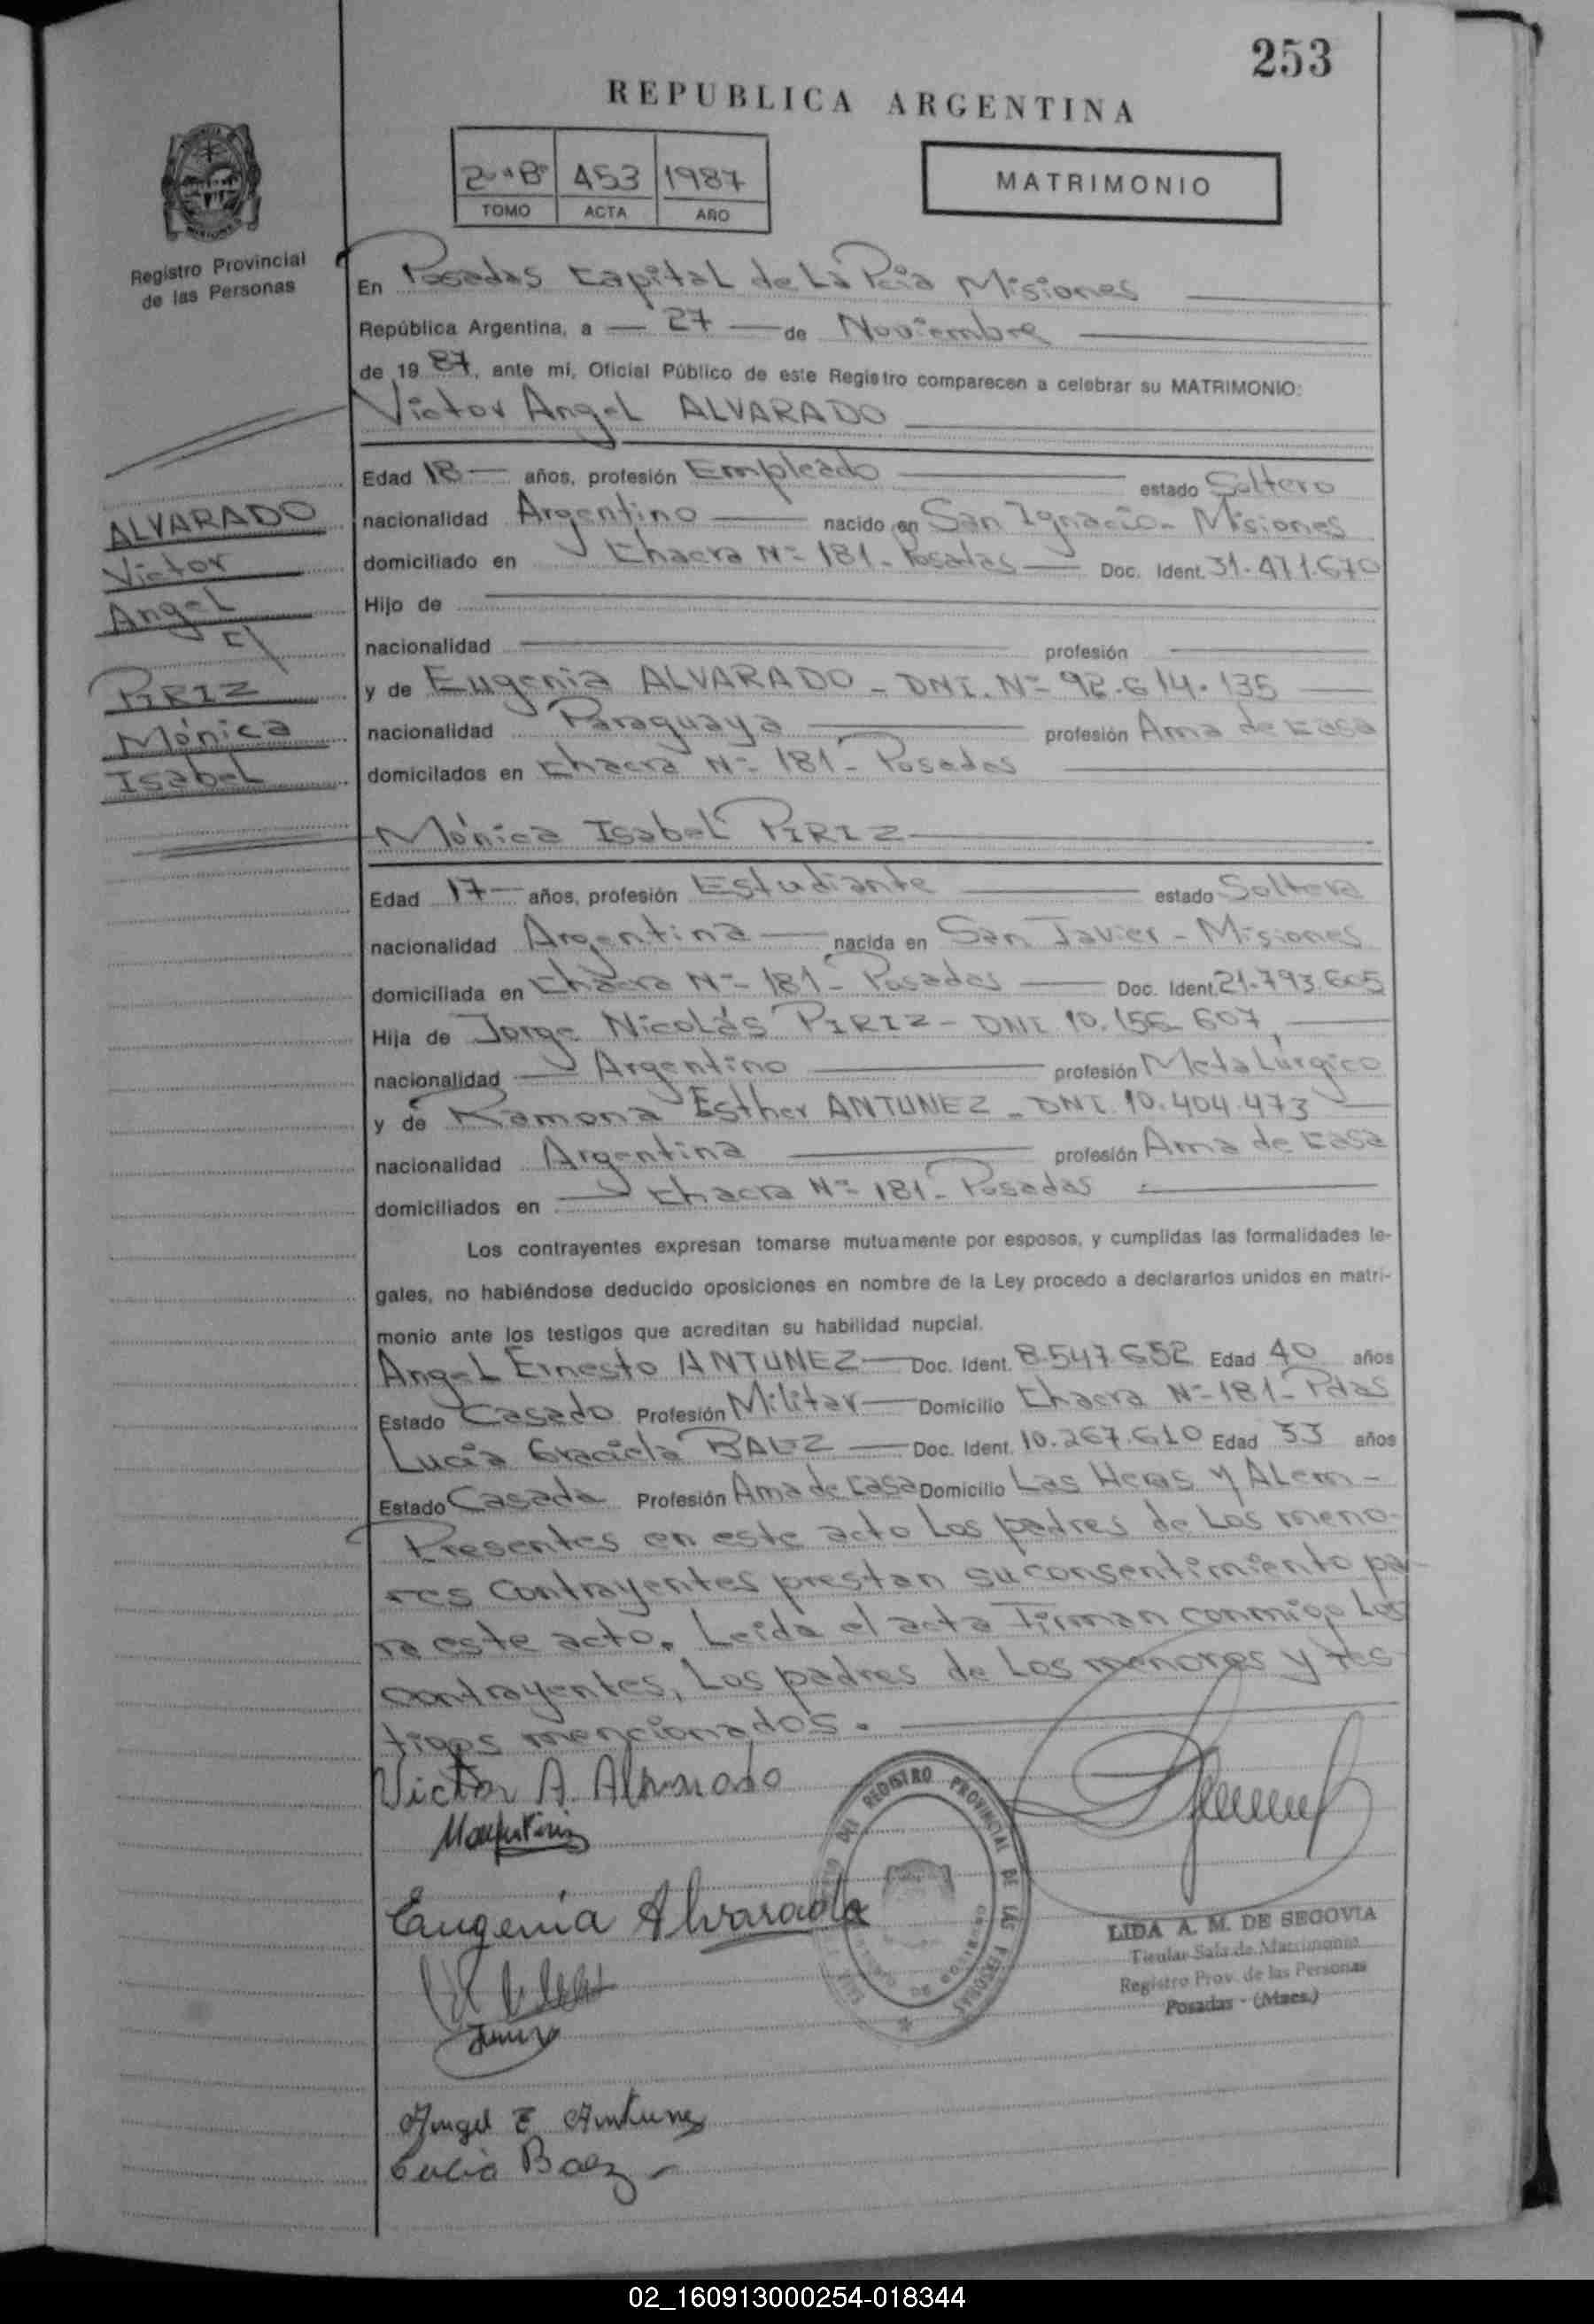 253
REPUBLICA ARGENTINA
453 1987
TOMO ACTA AÑO
MATRIMONIO
Registro Provincial
de las Personas
En Posadas Capital de La Pcia Misiones
República Argentina, a 27 de Noviembre
de 19 87, ante mí, Oficial Público de este Registro comparecen a celebrar su MATRIMONIO:
Victor Angel ALVARADO
Edad 18 años, profesión Empleado estado Soltero
nacionalidad Argentino nacido en San Ignacio - Misiones
domiciliado en Chacra Nº 181 - Posadas Doc. Ident. 31.471.670
Hijo de
nacionalidad profesión
y de Eugenia ALVARADO - DNI. Nº 92.614.135
nacionalidad Paraguaya profesión Ama de casa
domicilados en Chacra Nº 181 - Posadas
ALVARADO
Victor
Angel
c/
PIRIZ
Mónica
Isabel
Mónica Isabel PIRIZ
Edad 17 años, profesión Estudiante estado Soltera
nacionalidad Argentina nacida en San Javier - Misiones
domiciliada en Chacra Nº 181 - Posadas Doc. Ident. 21.793.605
Hija de Jorge Nicolás PIRIZ - DNI 10.156.607
nacionalidad Argentino profesión Metalúrgico
y de Ramona Esther ANTUNEZ - DNI. 10.404.473
nacionalidad Argentina profesión Ama de casa
domiciliados en Chacra Nº 181 - Posadas
Los contrayentes expresan tomarse mutuamente por esposos, y cumplidas las formalidades le-
gales, no habiéndose deducido oposiciones en nombre de la Ley procedo a declararlos unidos en matri-
monio ante los testigos que acreditan su habilidad nupcial.
Angel Ernesto ANTUNEZ Doc. Ident. 8.547.652 Edad 40 años
Estado Casado Profesión Militar Domicilio Chacra Nº 181 - Pdas
Lucia Graciela BAEZ Doc. Ident. 10.267.610 Edad 33 años
Estado Casada Profesión Ama de casa Domicilio Las Heras y ALem -
Presentes en este acto Los padres de Los meno-
res contrayentes prestan su consentimiento pa-
ra este acto. Leída el acta firman conmigo Los
contrayentes, Los padres de Los menores y tes-
tigos mencionados.
Victor A. Alvarado
Eugenia Alvarado
DEL REGISTRO PROVINCIAL DE LAS PERSONAS
LIDA A. M. DE SEGOVIA
Titular Sala de Matrimonio
Registro Prov. de las Personas
Posadas - (Mnes.)
Angel E Antunez
Lucia Baez
02_160913000254-018344